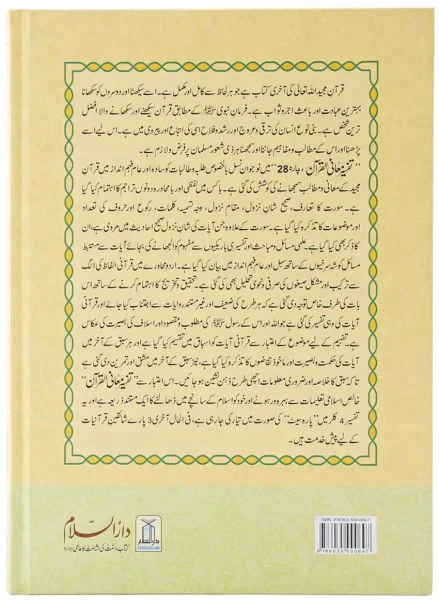 قرآن مجید اللہ تعالیٰ کی آخری کتاب ہے جو ہر لحاظ سے کامل اور مکمل ہے۔ اسے سیکھنا اور دوسروں کو سکھانا
بہترین عبادت اور باعث اجر و ثواب ہے۔ فرمانِ نبوی ﷺ کے مطابق قرآن سیکھنے اور سکھانے والا افضل
ترین شخص ہے۔ بنی نوع انسان کی ترقی و عروج اور رشد و فلاح اسی کی اتباع اور پیروی میں ہے۔ اس لیے اسے
پڑھنا اور اس کے مطالب و مفاہیم جاننا اور سمجھنا ہر ذی شعور مسلمان پر فرض و لازم ہے۔
"تفسیر معانی القرآن، پارہ 28" میں نوجوان نسل بالخصوص طلبہ و طالبات کو سادہ اور عام فہم انداز میں قرآن
مجید کے معانی و مطالب سمجھانے کی کوشش کی گئی ہے۔ اس میں لفظی اور بامحاورہ دونوں تراجم کا اہتمام کیا گیا
ہے۔ سورت کا تعارف، صحیح شانِ نزول، مقامِ نزول، وجہ تسمیہ، کلمات، رکوع اور حروف کی تعداد
اور موضوعات کا تذکرہ کیا گیا ہے۔ سورت کے علاوہ جن آیات کی شانِ نزول صحیح احادیث میں مروی ہے، ان
کا ذکر بھی کیا گیا ہے۔ علمی مسائل و مباحث اور تفسیری باریکیوں سے مفہوم کو الجھانے کی بجائے آیات سے مستنبط
مسائل کو شذرسرخیوں کے ساتھ سہل اور عام فہم انداز میں بیان کیا گیا ہے۔ اردو محاورے میں قرآنی الفاظ کی الگ
سے ترکیب اور مشکل صیغوں کی صرفی و نحوی تحلیل بھی کی گئی ہے۔ تحقیق و تخریج کا اہتمام کرنے کے ساتھ اس
بات کی طرف خاص توجہ دی گئی ہے کہ ہر طرح کی ضعیف اور غیر مستند روایات سے اجتناب کیا جائے اور قرآنی
آیات کی وہی تفسیر کی گئی ہے جو اللہ اور اس کے رسول ﷺ کی مطلوب و مقصود اور اسلاف کی بصیرت کی عکاس
ہے۔ تفہیم کے لیے موضوع کے اعتبار سے قرآنی آیات کو اسباق میں تقسیم کیا گیا ہے اور ہر سبق کے آخر میں
آیات کی حکمت و بصیرت اور ماخوذ تقاضوں کا تذکرہ کیا گیا ہے، نیز سبق کے آخر میں مشق اور تمرین دی گئی ہے
تاکہ سبق کا خلاصہ اور ضروری معلومات اچھی طرح ذہن نشین ہو جائیں۔ اس اعتبار سے "تفسیر معانی القرآن"
خالص اسلامی تعلیمات سے بہرہ ور ہونے اور خود کو اسلام کے سانچے میں ڈھالنے کا ایک مستند ذریعہ ہے اور یہ
تفسیر 4 کلر میں "پارہ سیٹ" کی صورت میں تیار کی جا رہی ہے، فی الحال آخری 3 پارے شائقین قرآنیات
کے لیے پیش خدمت ہیں۔
دارالسلام
کتاب و سنت کی اشاعت کا عالمی ادارہ
DARUSSALAM
ISBN: 978-603-500-069-7
9 786035 000697